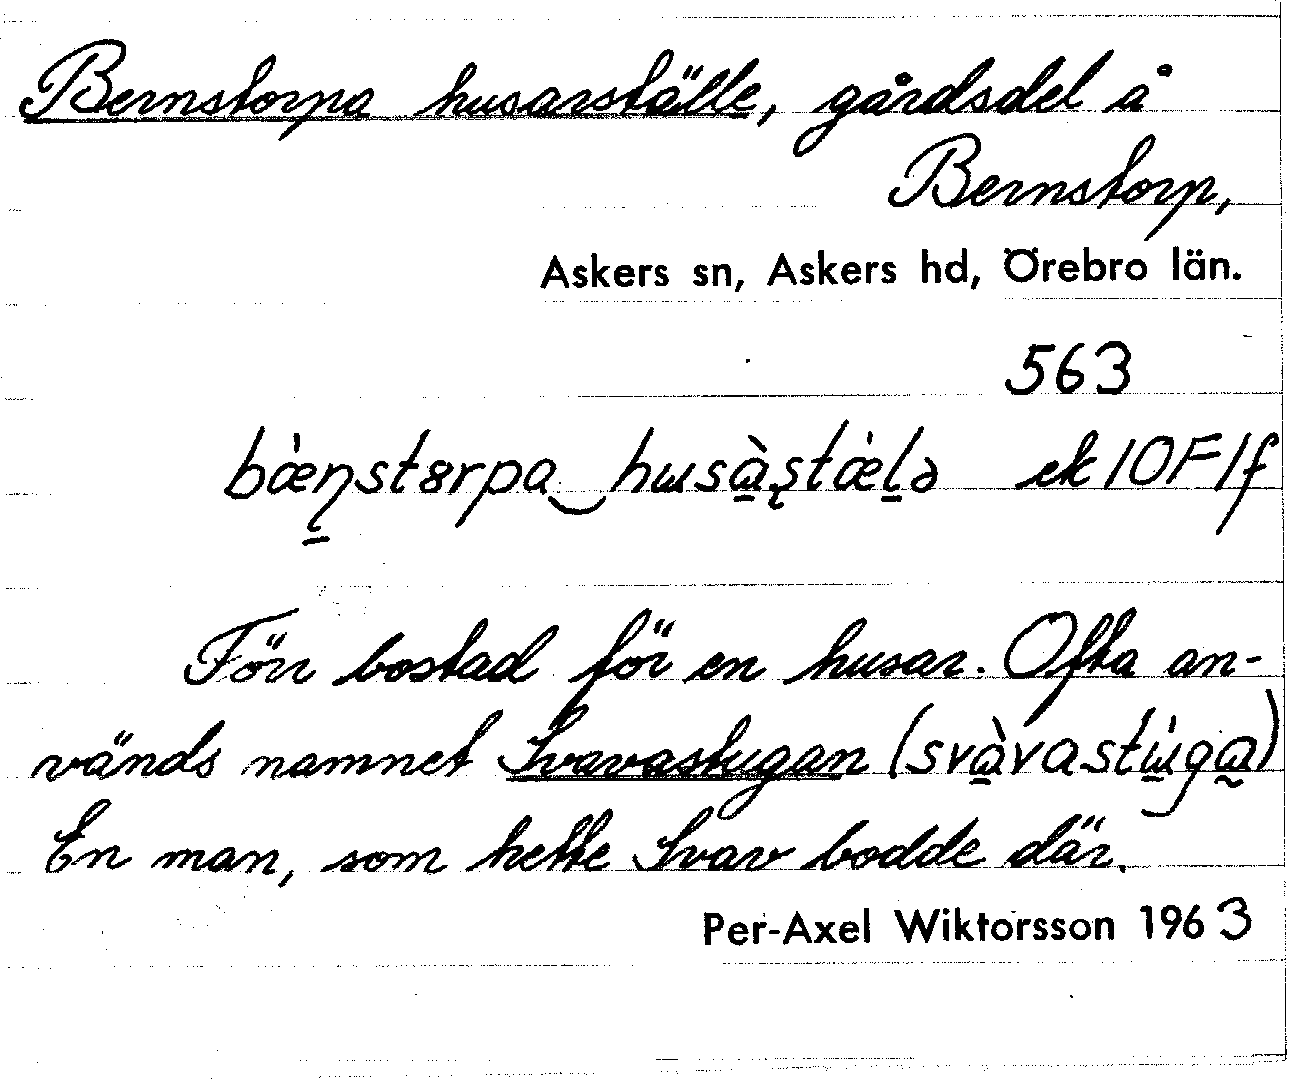 Bernstorpa husarställe, gårdsdel å
Bernstorp,
Askers sn, Askers hd, Örebro län.
563
bæ̀ṇstɵrpa‿husàṣtæ̀ḷə ek 10F1f
Förr bostad för en husar. Ofta an-
vänds namnet Svavastugan (svàvastùga)
En man, som hette Svav bodde där.
Per-Axel Wiktorsson 1963